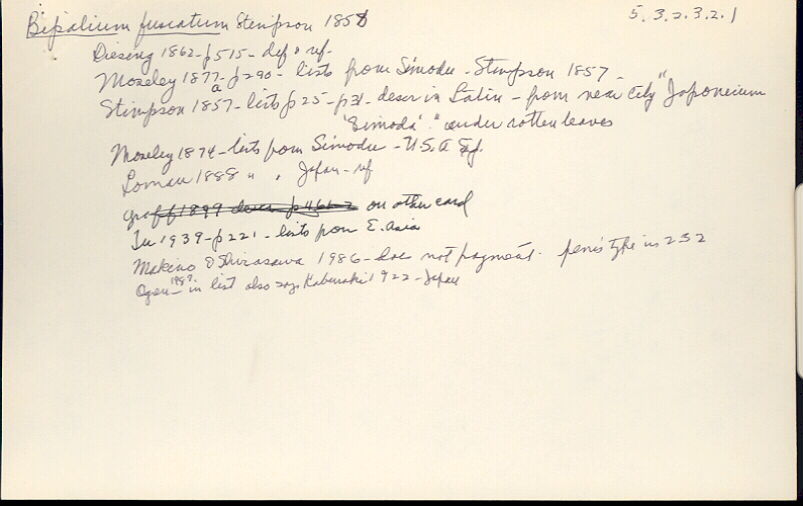 Bipalium fuscatum Stimpson 1857 5.3.2.3.2.1
Diesing 1862 - p515 - def & ref.
Moseley 1877a - p290 - lists from Simodu - Stimpson 1857 -
Stimpson 1857 - lists p25 - p31 - descr in Latin - from near city "Japoneium
"Simoda". under rotten leaves
Moseley 1874 - lists from Simodu - U.S.A
Loman 1888 " " Japan - ref
Graff 1899 descr p466-7 on other card
Tu 1939 - p221 - lists from E. Asia
Makino & Shirasawa 1986 - does not fragment. penis type is 232
Ogren 1987 - in list also says Kaburaki 1922 - Japan